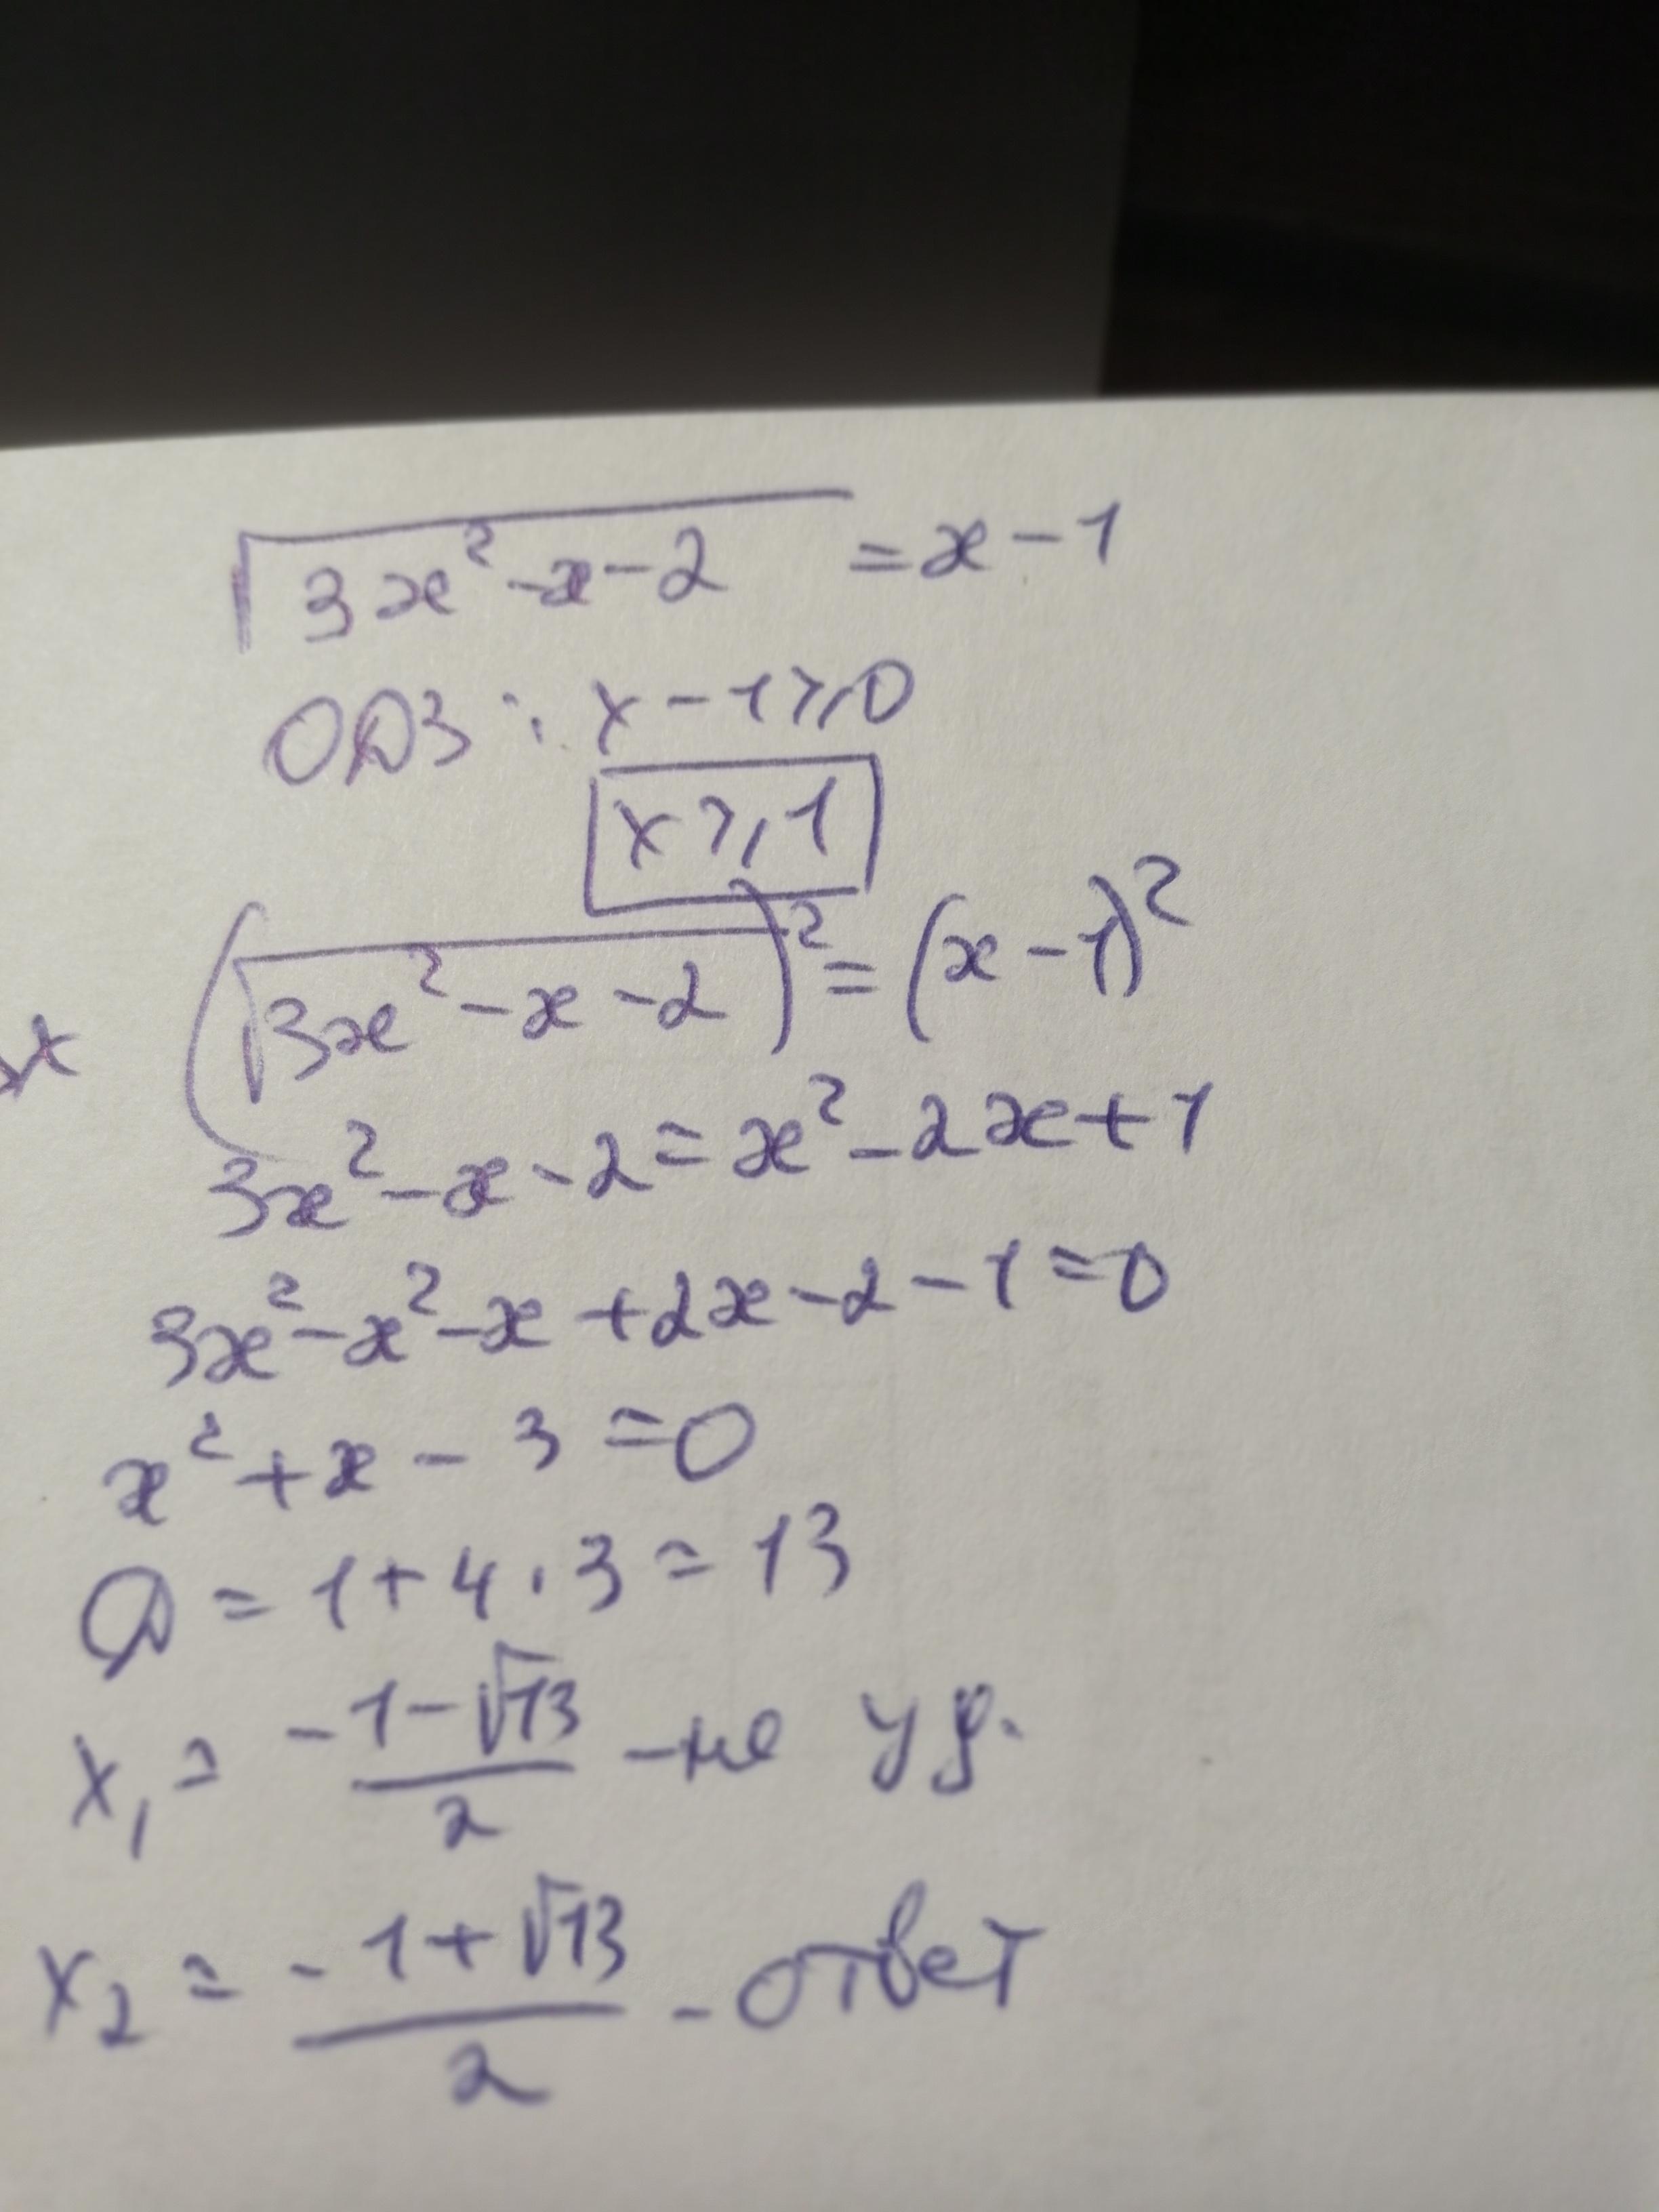 √(3x²-x-2) = x-1
ОДЗ: x-1⩾0
x⩾1
(√(3x²-x-2))² = (x-1)²
3x²-x-2=x²-2x+1
3x²-x²-x+2x-2-1=0
x²+x-3=0
D=1+4·3=13
x₁=(-1-√13)/2 -не уд.
x₂=(-1+√13)/2 -ответ